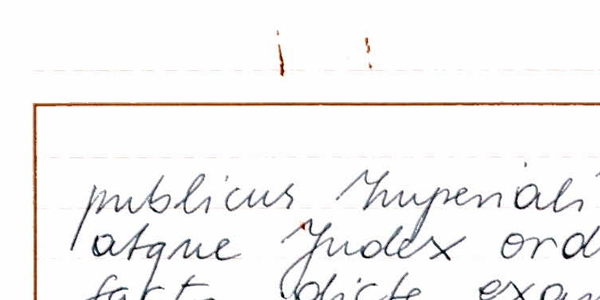 publicus Imperiali
atque Judex ord
facta dicte exam